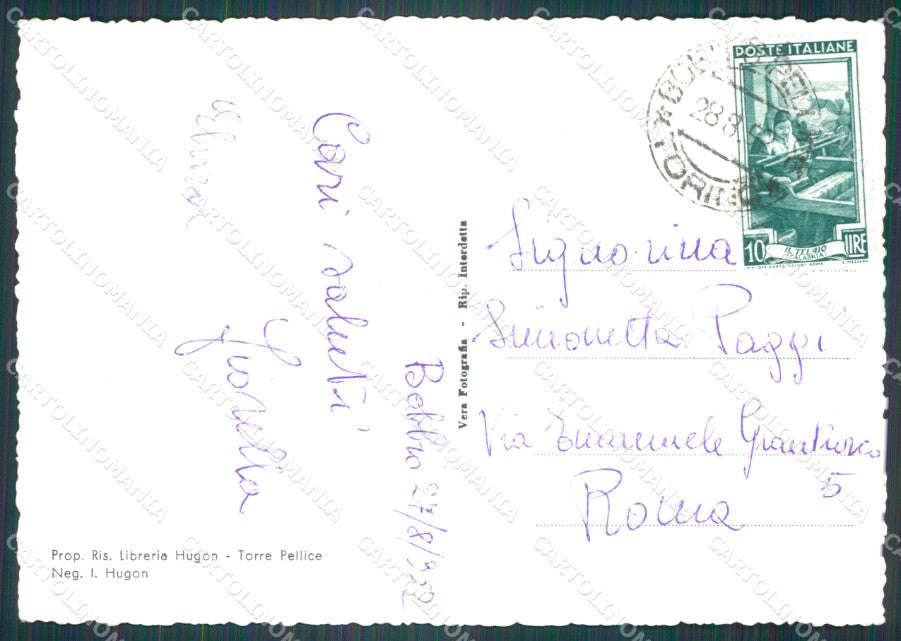 Cari saluti
Fiorella
Bobbio 27/8/952
Vera Fotografia - Rip. Interdetta
Prop. Ris. Libreria Hugon - Torre Pellice
Neg. I. Hugon
POSTE ITALIANE
10 LIRE
IL TELAIO
28.8
TORINO
Signorina
Simonetta Paggi
Via Emanuele Gianturco
5
Roma
CARTOLINOMANIA